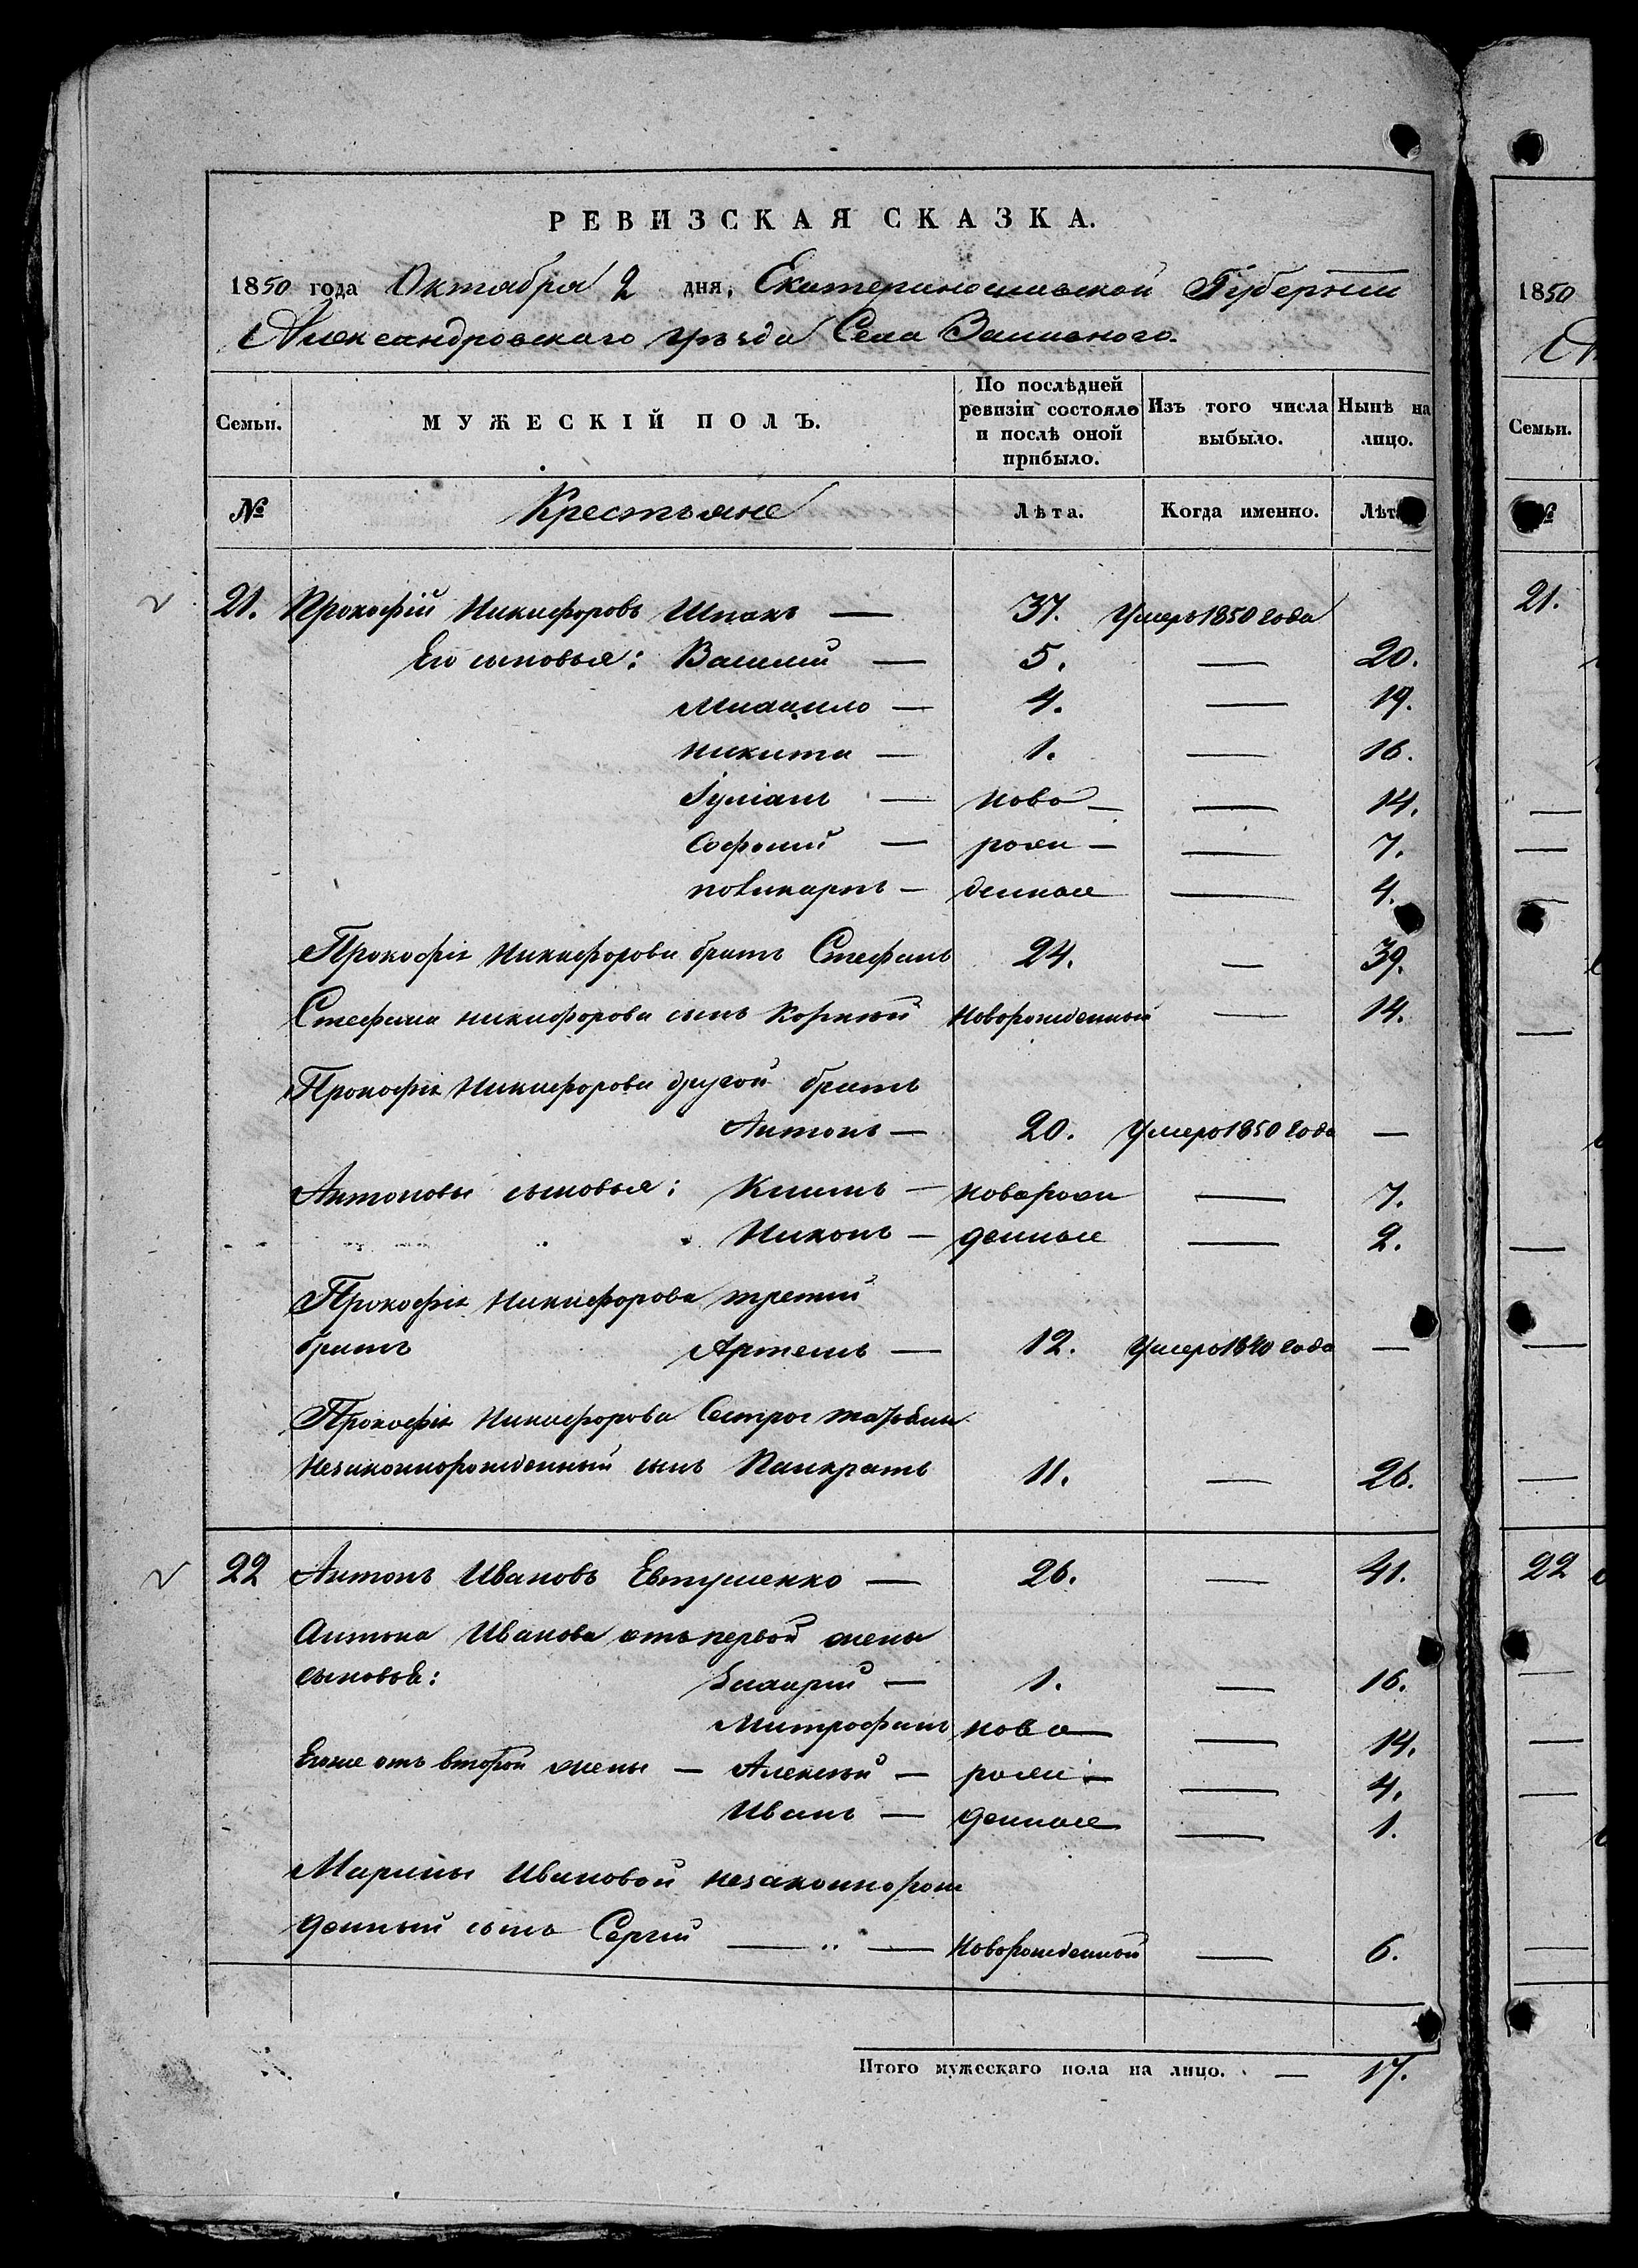 РЕВИЗСКАЯ СКАЗКА.
1850 года Октября 2 дня, Екатеринославской Губернии
Александровскаго уѣзда Села Заливнаго.
Семьи. МУЖЕСКІЙ ПОЛЪ. По послѣдней ревизіи состояло и послѣ оной прибыло. Изъ того числа выбыло. Нынѣ на лицо.
№ Крестьяне Лѣта. Когда именно. Лѣт
21. Прокофій Никифоровъ Шпакъ — 37. Умеръ 1850 года
Его сыновья: Василий — 5. — 20.
Михайло — 4. — 19.
Никита — 1. — 16.
Іуліанъ — ново — — 14.
Софоній — рож — — 7.
Поликарпъ — денные — 4.
Прокофія Никифорова братъ Стефанъ 24. — 39.
Стефана Никифорова сынъ Корній Новорожденный — 14.
Прокофія Никифорова другой братъ
Антонъ — 20. Умеръ 1850 года —
Антоновы сыновья: Климъ —Новорож — 7.
Никонъ — денные — 2.
Прокофія Никифорова третій
братъ Артемъ — 12. Умеръ 1840 года —
Прокофія Никифорова Сестры
Незаконнорожденный сынъ Панкратъ 11. — 26.
22 Антонъ Ивановъ Евтушенко — 26. — 41.
Антона Иванова отъ первой жены
сыновья: — 1. — 16.
Митрофанъ ново — — 14.
Егоже отъ второй жены — Алексѣй — рож — — 4.
Иванъ — денные — 1.
Марины Ивановой незаконнорож
денный сынъ Сергій — „ — Новорожденной — 6.
Итого мужескаго пола на лицо. — 17.
1850
Семьи.
21.
22